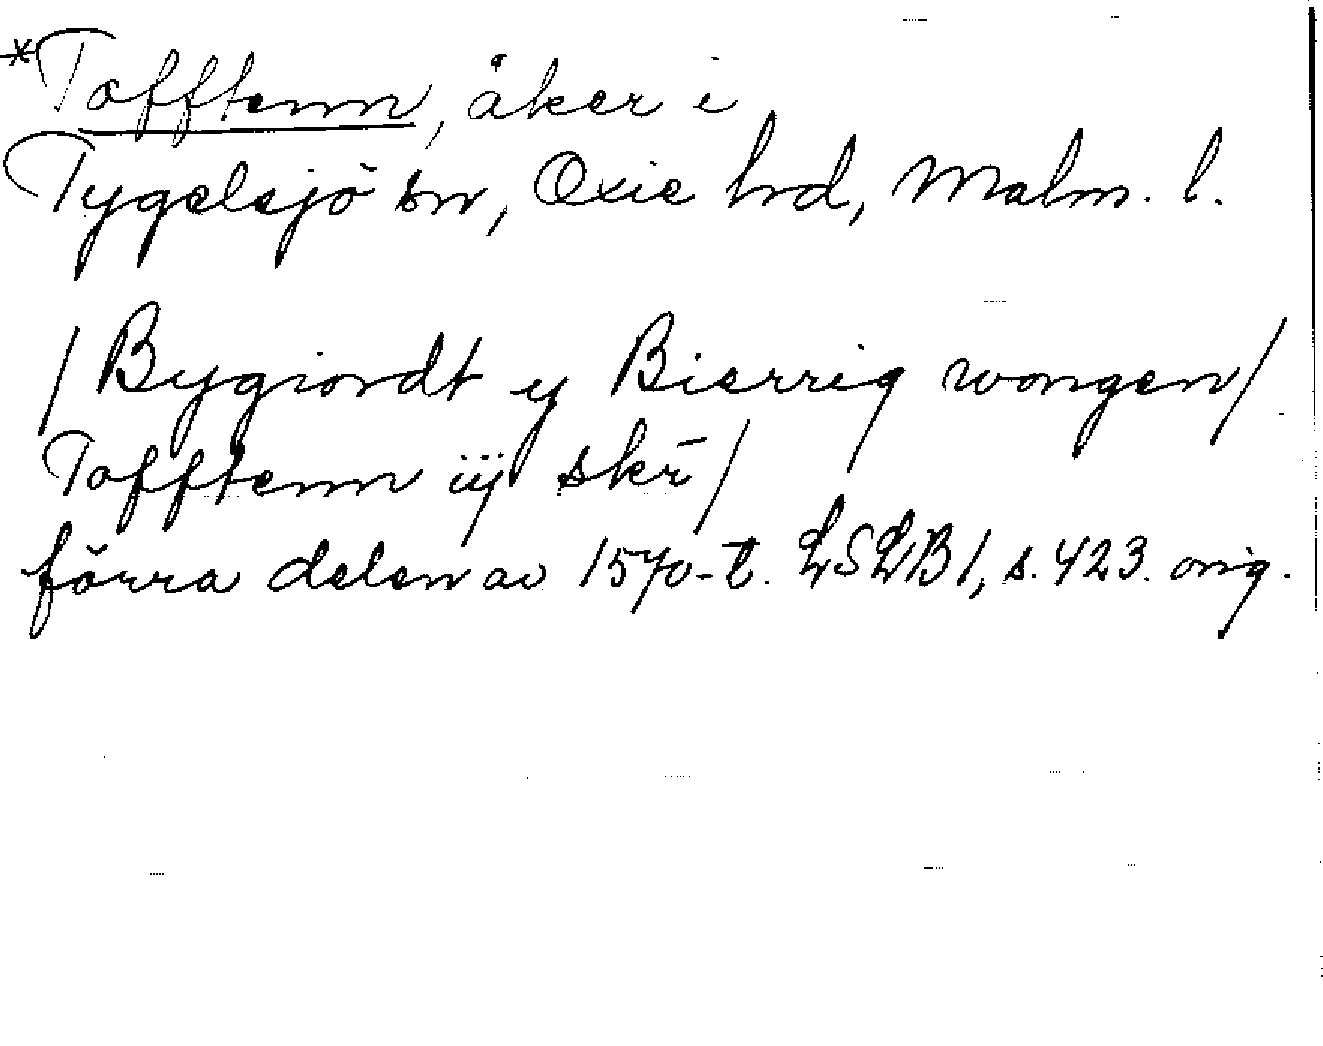 *Tofftenn, åker i
Tygelsjö sn, Oxie hrd, Malm. l.
/Bygiordt y Bierrig wongen/
Tofftenn iij skr̄/
förra delen av 1570-t. LSLB1, s. 423. orig.